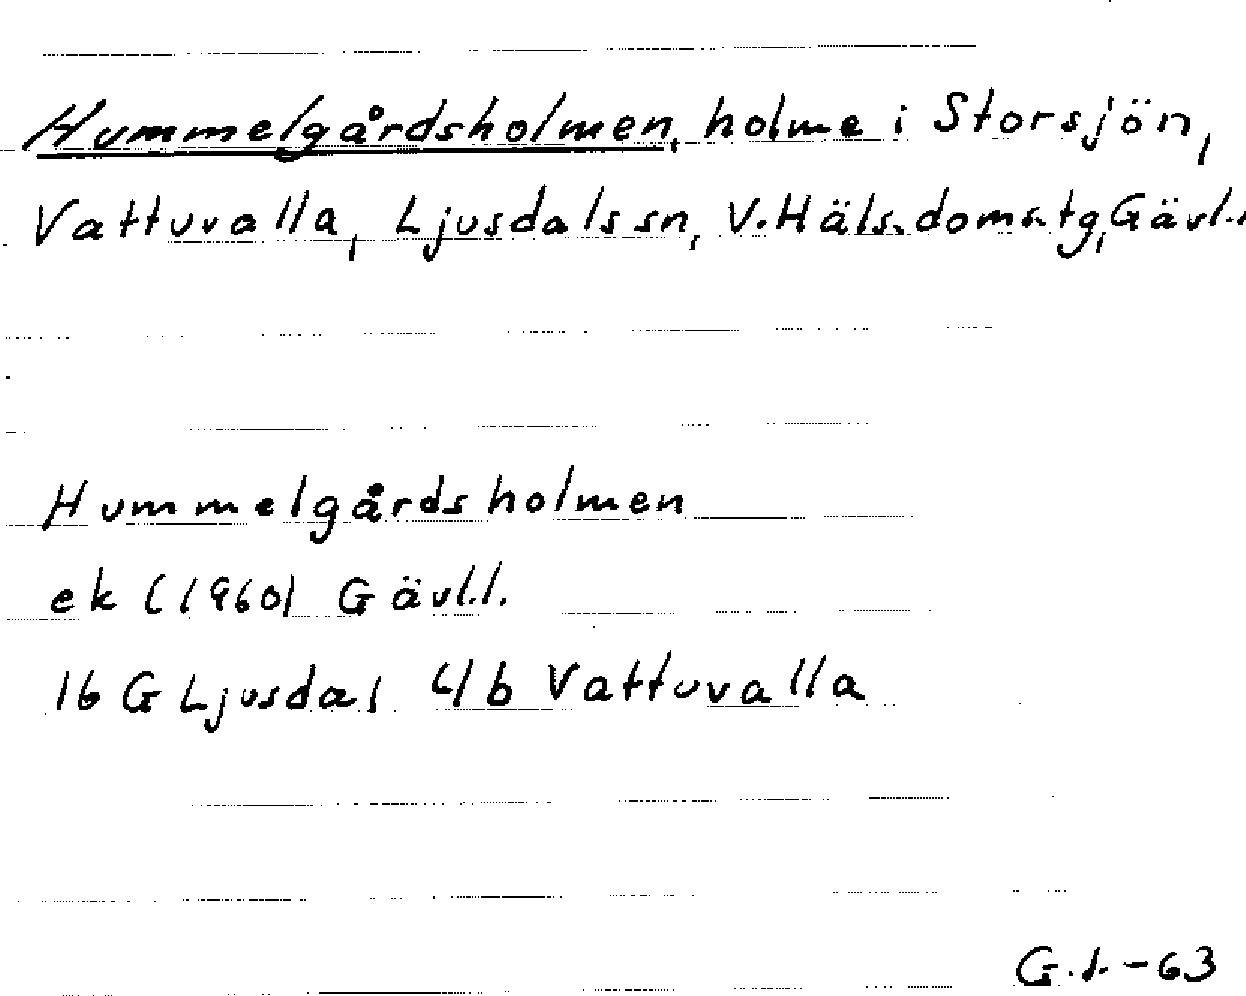 Hummelgårdsholmen, holme i Storsjön,
Vattuvalla, Ljusdals sn, V. Häls. doms.tg, Gävl.
Hummelgårdsholmen
ek (1960) Gävl.l.
16 G Ljusdal 4 b Vattuvalla
-63